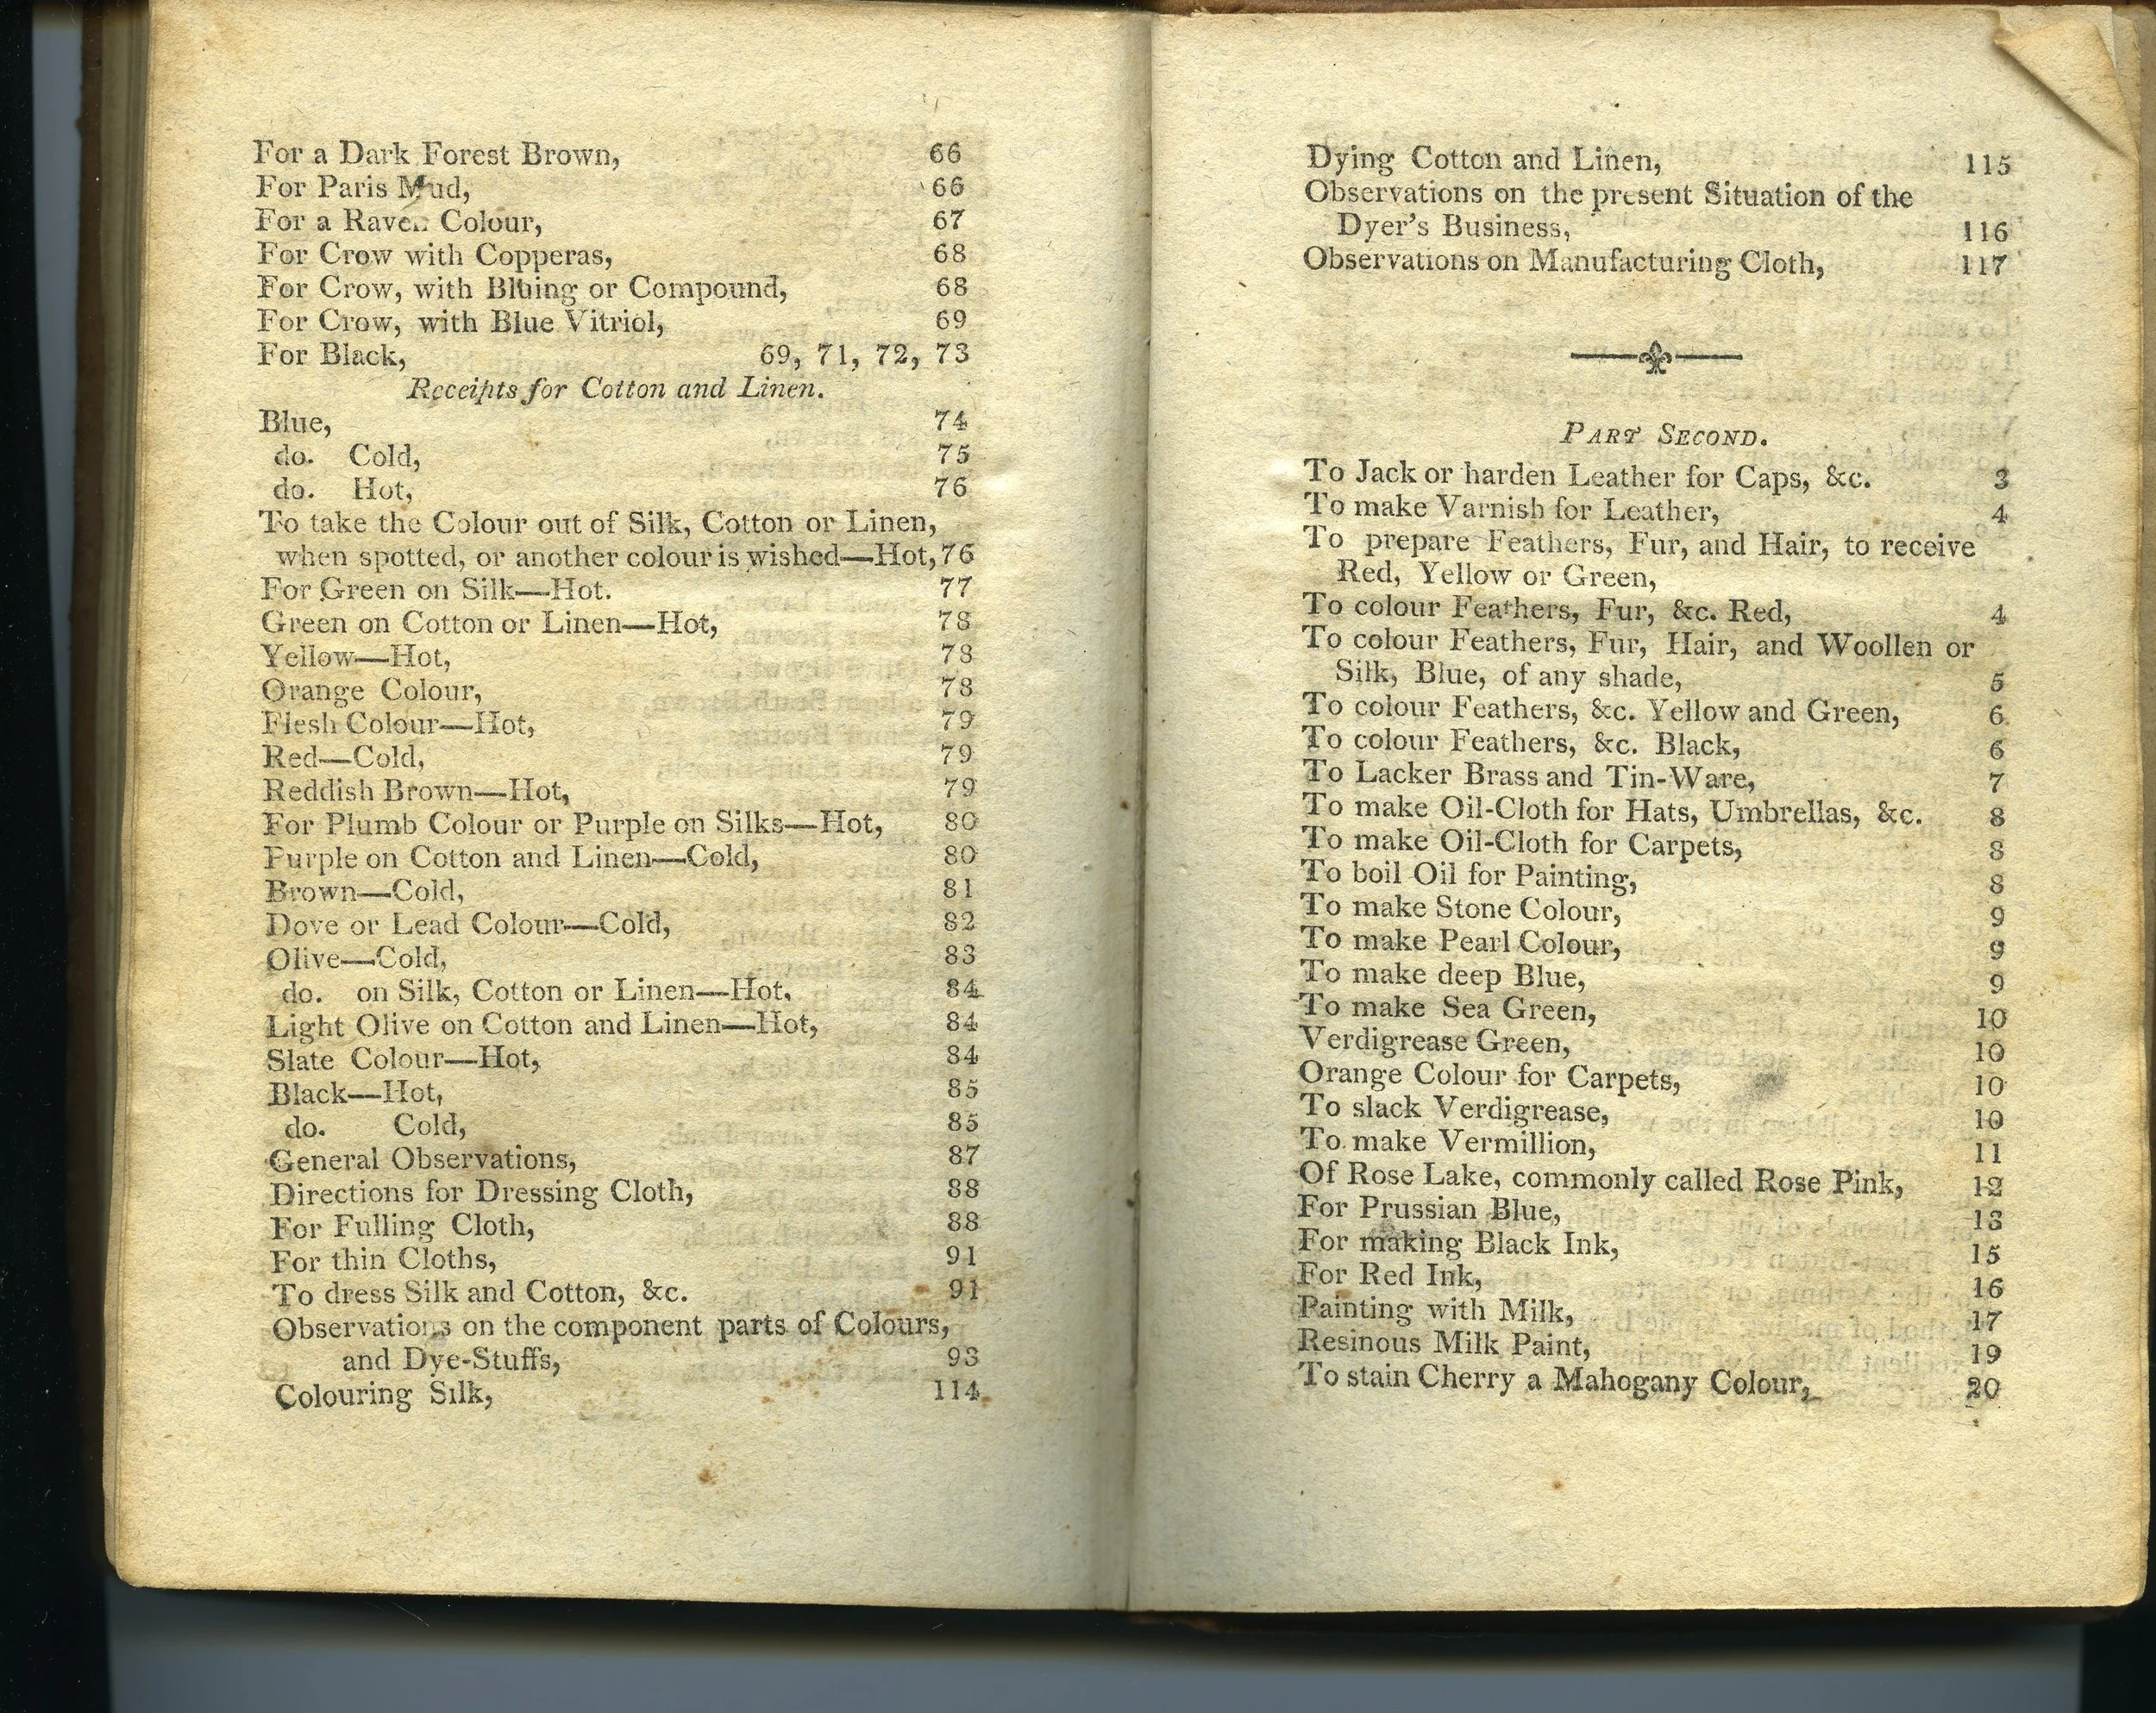 For a Dark Forest Brown, 66
For Paris Mud, 66
For a Raven Colour, 67
For Crow with Copperas, 68
For Crow, with Bluing or Compound, 68
For Crow, with Blue Vitriol, 69
For Black, 69, 71, 72, 73
Receipts for Cotton and Linen.
Blue, 74
do. Cold, 75
do. Hot, 76
To take the Colour out of Silk, Cotton or Linen,
when spotted, or another colour is wished—Hot, 76
For Green on Silk—Hot. 77
Green on Cotton or Linen—Hot, 78
Yellow—Hot, 78
Orange Colour, 78
Flesh Colour—Hot, 79
Red—Cold, 79
Reddish Brown—Hot, 79
For Plumb Colour or Purple on Silks—Hot, 80
Purple on Cotton and Linen—Cold, 80
Brown—Cold, 81
Dove or Lead Colour—Cold, 82
Olive—Cold, 83
do. on Silk, Cotton or Linen—Hot. 84
Light Olive on Cotton and Linen—Hot, 84
Slate Colour—Hot, 84
Black—Hot, 85
do. Cold, 85
General Observations, 87
Directions for Dressing Cloth, 88
For Fulling Cloth, 88
For thin Cloths, 91
To dress Silk and Cotton, &c. 91
Observations on the component parts of Colours,
and Dye-Stuffs, 93
Colouring Silk, 114
Dying Cotton and Linen, 115
Observations on the present Situation of the
Dyer's Business, 116
Observations on Manufacturing Cloth, 117
PART SECOND.
To Jack or harden Leather for Caps, &c. 3
To make Varnish for Leather, 4
To prepare Feathers, Fur, and Hair, to receive
Red, Yellow or Green,
To colour Feathers, Fur, &c. Red, 4
To colour Feathers, Fur, Hair, and Woollen or
Silk, Blue, of any shade, 5
To colour Feathers, &c. Yellow and Green, 6
To colour Feathers, &c. Black, 6
To Lacker Brass and Tin-Ware, 7
To make Oil-Cloth for Hats, Umbrellas, &c. 8
To make Oil-Cloth for Carpets, 8
To boil Oil for Painting, 8
To make Stone Colour, 9
To make Pearl Colour, 9
To make deep Blue, 9
To make Sea Green, 10
Verdigrease Green, 10
Orange Colour for Carpets, 10
To slack Verdigrease, 10
To make Vermillion, 11
Of Rose Lake, commonly called Rose Pink, 12
For Prussian Blue, 13
For making Black Ink, 15
For Red Ink, 16
Painting with Milk, 17
Resinous Milk Paint, 19
To stain Cherry a Mahogany Colour, 20